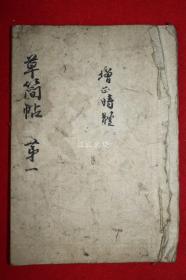 增正時體
草簡帖 第一